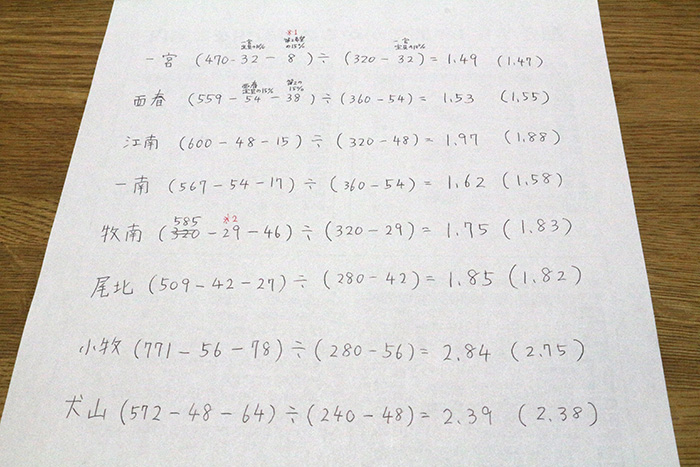 ※1
一宮定員の10% 第2希望の15% 一宮定員の10%
一宮 (470-32-8)÷(320-32)=1.49 (1.47)
西春定員の15% 第2の15%
西春 (559-54-38)÷(360-54)=1.53 (1.55)
江南 (600-48-15)÷(320-48)=1.97 (1.88)
一南 (567-54-17)÷(360-54)=1.62 (1.58)
585 ※2
牧南 (320-29-46)÷(320-29)=1.75 (1.83)
尾北 (509-42-27)÷(280-42)=1.85 (1.82)
小牧 (771-56-78)÷(280-56)=2.84 (2.75)
犬山 (572-48-64)÷(240-48)=2.39 (2.38)